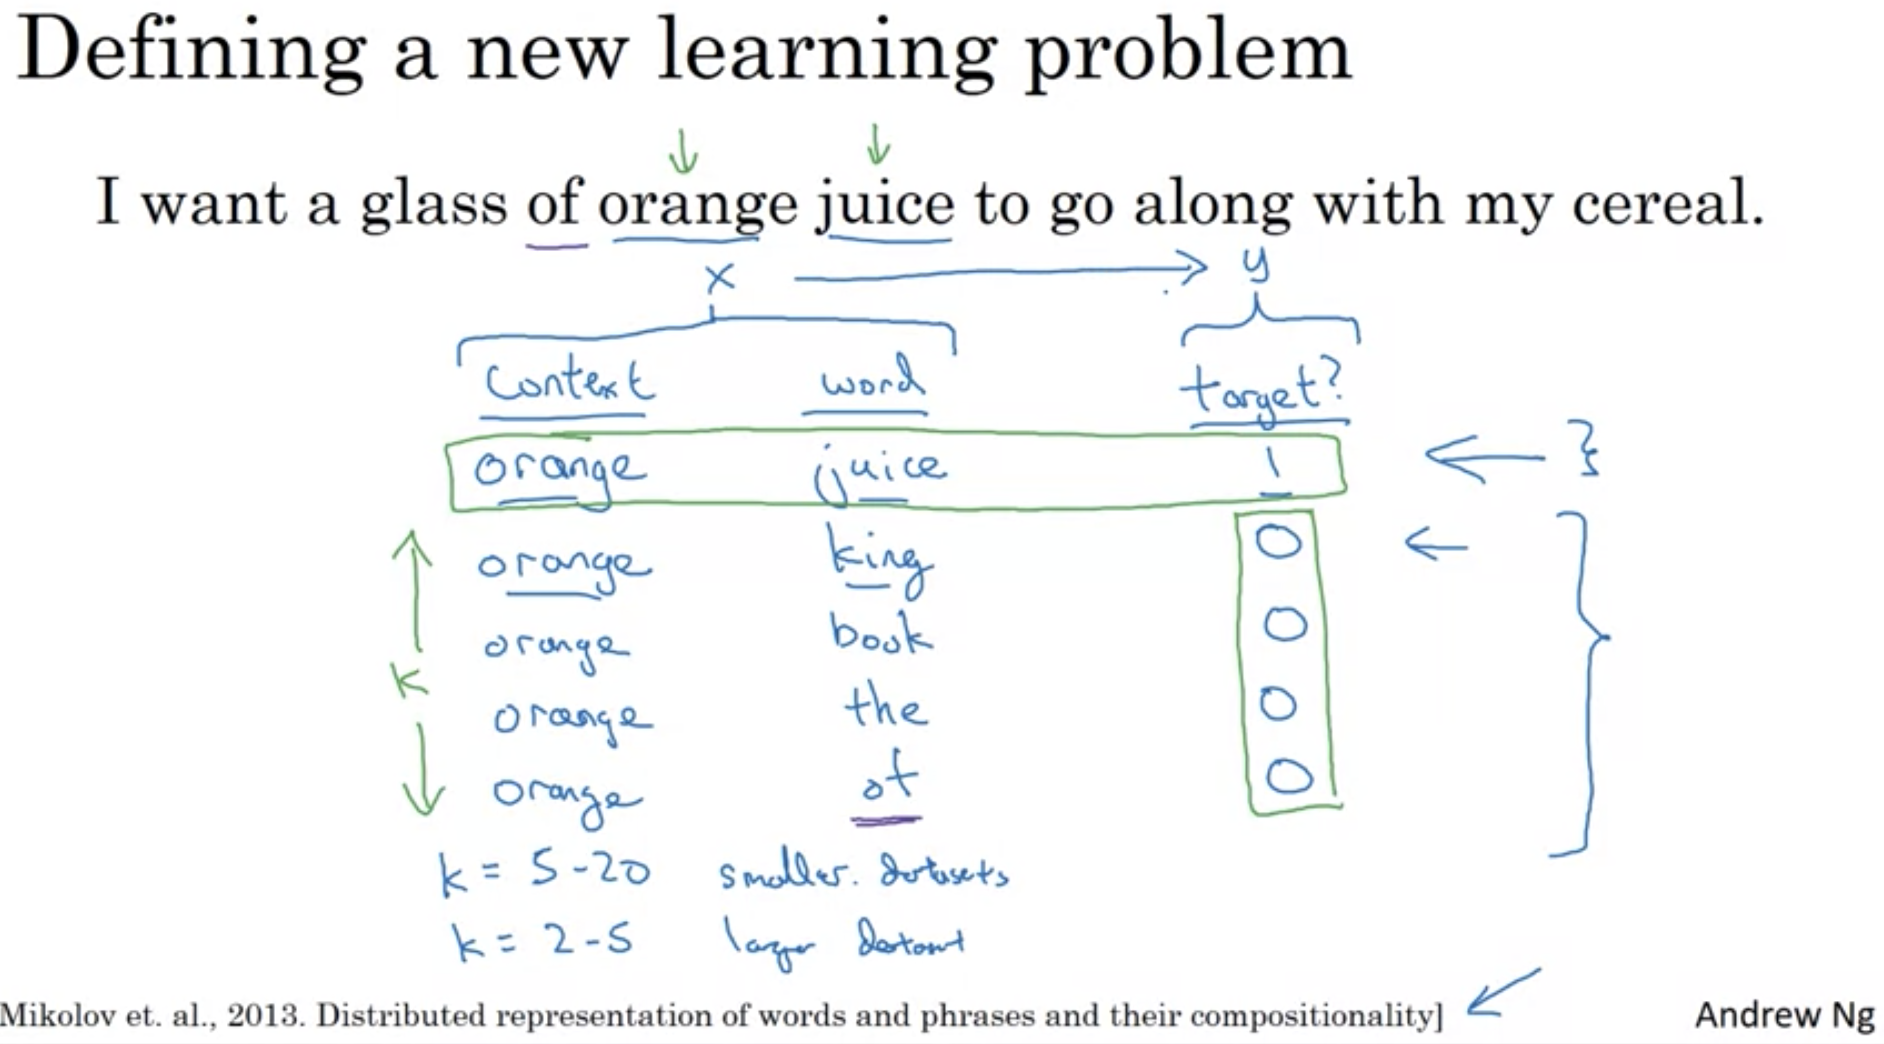 Defining a new learning problem
I want a glass of orange juice to go along with my cereal.
x y
Context word target?
orange juice 1
orange king 0
orange book 0
orange the 0
orange of 0
k
k = 5-20 smaller datasets
k = 2-5 larger dataset
Mikolov et. al., 2013. Distributed representation of words and phrases and their compositionality]
Andrew Ng